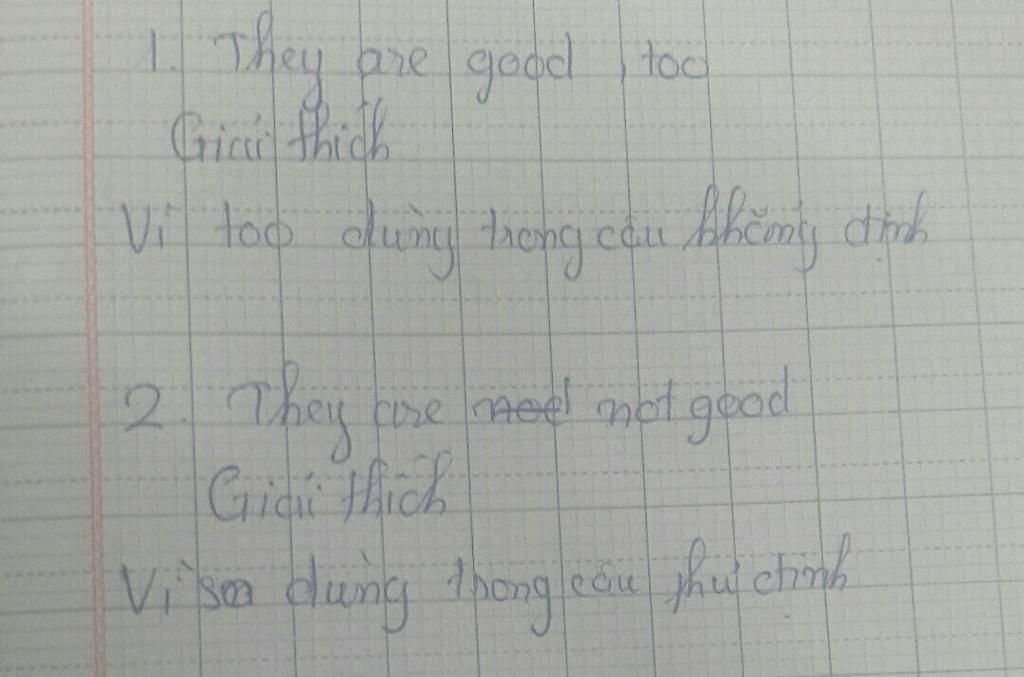 1. They are good, too
Giải thích
Vì too dùng trong câu khẳng định
2. They are not not good
Giải thích
Vì so dùng trong câu phủ định